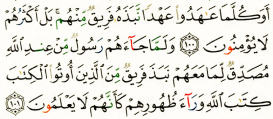 أَوَكُلَّمَا عَٰهَدُوا۟ عَهْدًا نَّبَذَهُۥ فَرِيقٌ مِّنْهُم ۚ بَلْ أَكْثَرُهُمْ
لَا يُؤْمِنُونَ ١٠٠ وَلَمَّا جَآءَهُمْ رَسُولٌ مِّنْ عِندِ ٱللَّهِ
مُصَدِّقٌ لِّمَا مَعَهُمْ نَبَذَ فَرِيقٌ مِّنَ ٱلَّذِينَ أُوتُوا۟ ٱلْكِتَٰبَ
كِتَٰبَ ٱللَّهِ وَرَآءَ ظُهُورِهِمْ كَأَنَّهُمْ لَا يَعْلَمُونَ ١٠١